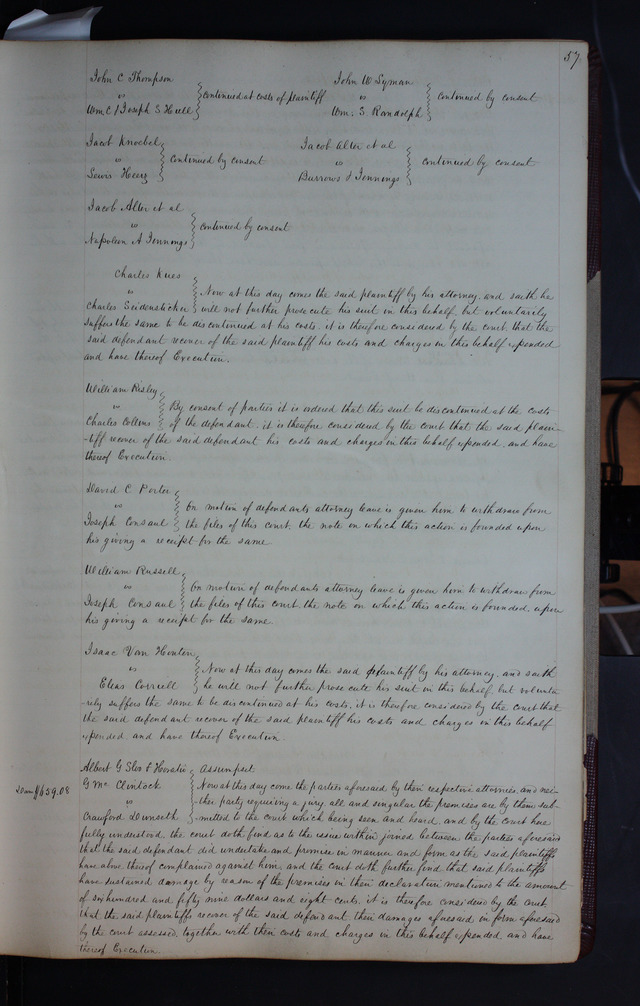 57.
John C Thompson
vs
Wm C & Joseph S Hull
continued at costs of plaintiff
John W Syman
vs
Wm. S. Randolph
continued by consent
Jacob Knoebel
vs
Lewis Heerz
continued by consent
Jacob Alter et al
vs
Burrows & Jennings
continued by consent
Jacob Alter et al
vs
Napoleon A Jennings
continued by consent
Charles Kues
vs
Charles Seidensticker
Now at this day comes the said plaintiff by his attorney, and saith he
will not further prosecute his suit in this behalf, but voluntarily
suffers the same to be discontinued at his costs, it is therefore considered by the court that the
said defendant recover of the said plaintiff his costs and charges in this behalf expended
and have thereof Execution.
William Risley
vs
Charles Collins
By consent of parties it is ordered that this suit be discontinued at the costs
of the defendant, it is therefore considered by the court that the said plain-
-tiff recover of the said defendant his costs and charges in this behalf expended, and have
thereof Execution.
David C Porter
vs
Joseph Consaul
On motion of defendants attorney leave is given him to withdraw from
the files of this court, the note on which this action is founded upon
his giving a receipt for the same
William Russell
vs
Joseph Consaul
On motion of defendants attorney leave is given him to withdraw from
the files of this court the note on which this action is founded, upon
his giving a receipt for the same.
Isaac Van Houten
vs
Elias Corriell
Now at this day comes the said plaintiff by his attorney, and saith
he will not further prosecute his suit in this behalf, but volunta-
-rily suffers the same to be discontinued at his costs, it is therefore considered by the court that
the said defendant recover of the said plaintiff his costs and charges in this behalf
expended, and have thereof Execution.
Albert G Slos & Horatio
G Mc Clintock
vs
Crawford Dunseth
$659.08
Assumpsit
Now at this day come the parties aforesaid by their respective attornies, and nei-
ther party requiring a jury, all and singular the premises are by them sub-
-mitted to the court which being seen and heard, and by the court here
fully understood, the court doth find, as to the issue within joined between the parties aforesaid
that the said defendant did undertake and promise in manner and form as the said plaintiffs
have above thereof complained against him, and the court doth further find that said plaintiffs
have sustained damage by reason of the premises in their declaration mentioned to the amount
of six hundred and fifty nine dollars and eight cents, it is therefore considered by the court
that the said plaintiffs recover of the said defendant their damages aforesaid in form aforesaid
by the court assessed, together with their costs and charges in this behalf expended and have
thereof Execution.